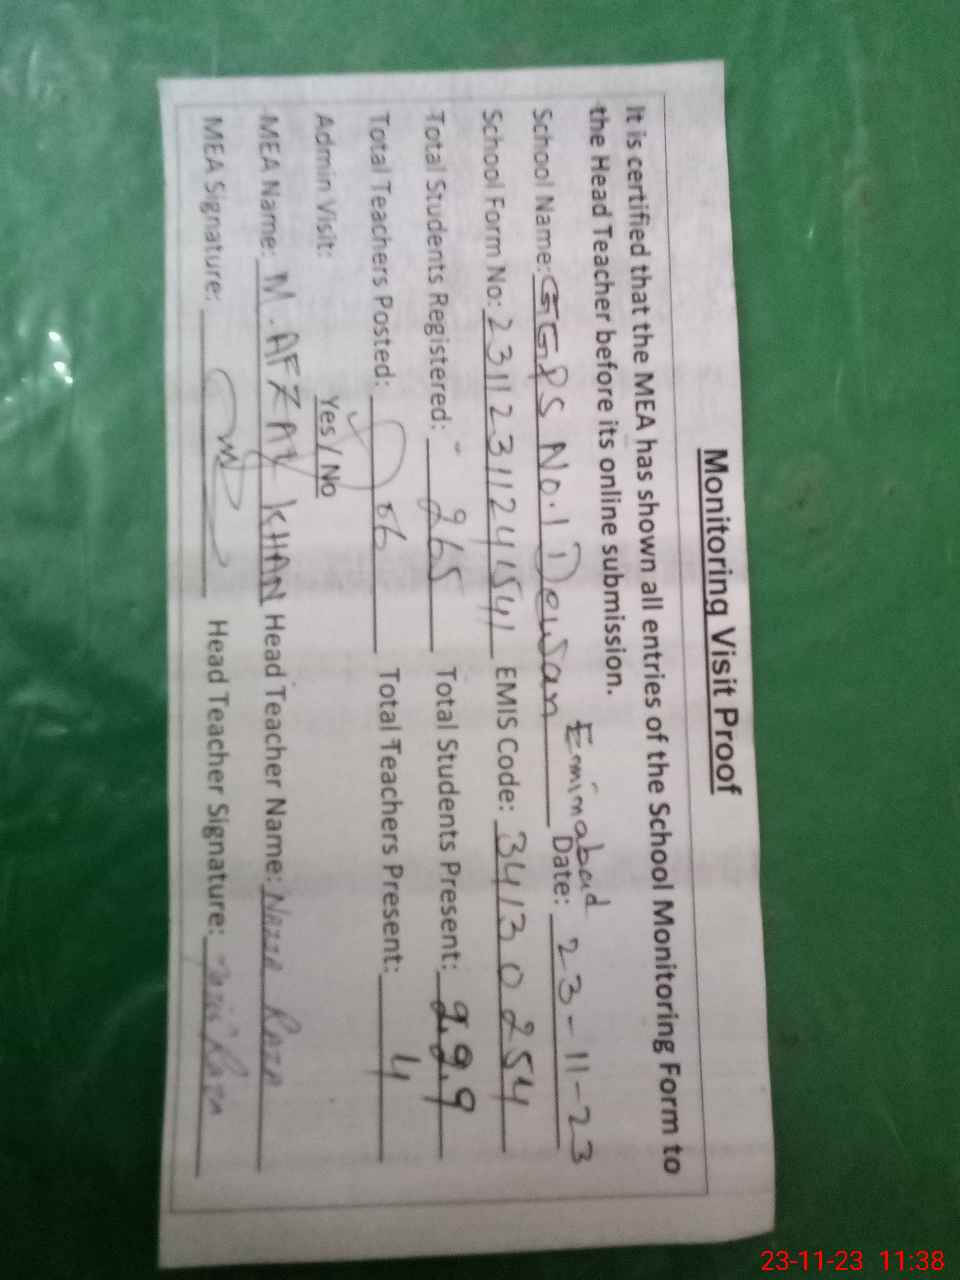 Monitoring Visit Proof
It is certified that the MEA has shown all entries of the School Monitoring Form to
the Head Teacher before its online submission.
School Name: GGPS No.1 Dewan Eminabad Date: 23-11-23
School Form No: 2311231124154 EMIS Code: 34130254
Total Students Registered: 265 Total Students Present: 229
Total Teachers Posted: 06 Total Teachers Present: 4
Admin Visit: Yes / No
MEA Name: M. AFZAL KHAN Head Teacher Name: Nazia Raza
MEA Signature: Head Teacher Signature: Nazia Raza
23-11-23 11:38